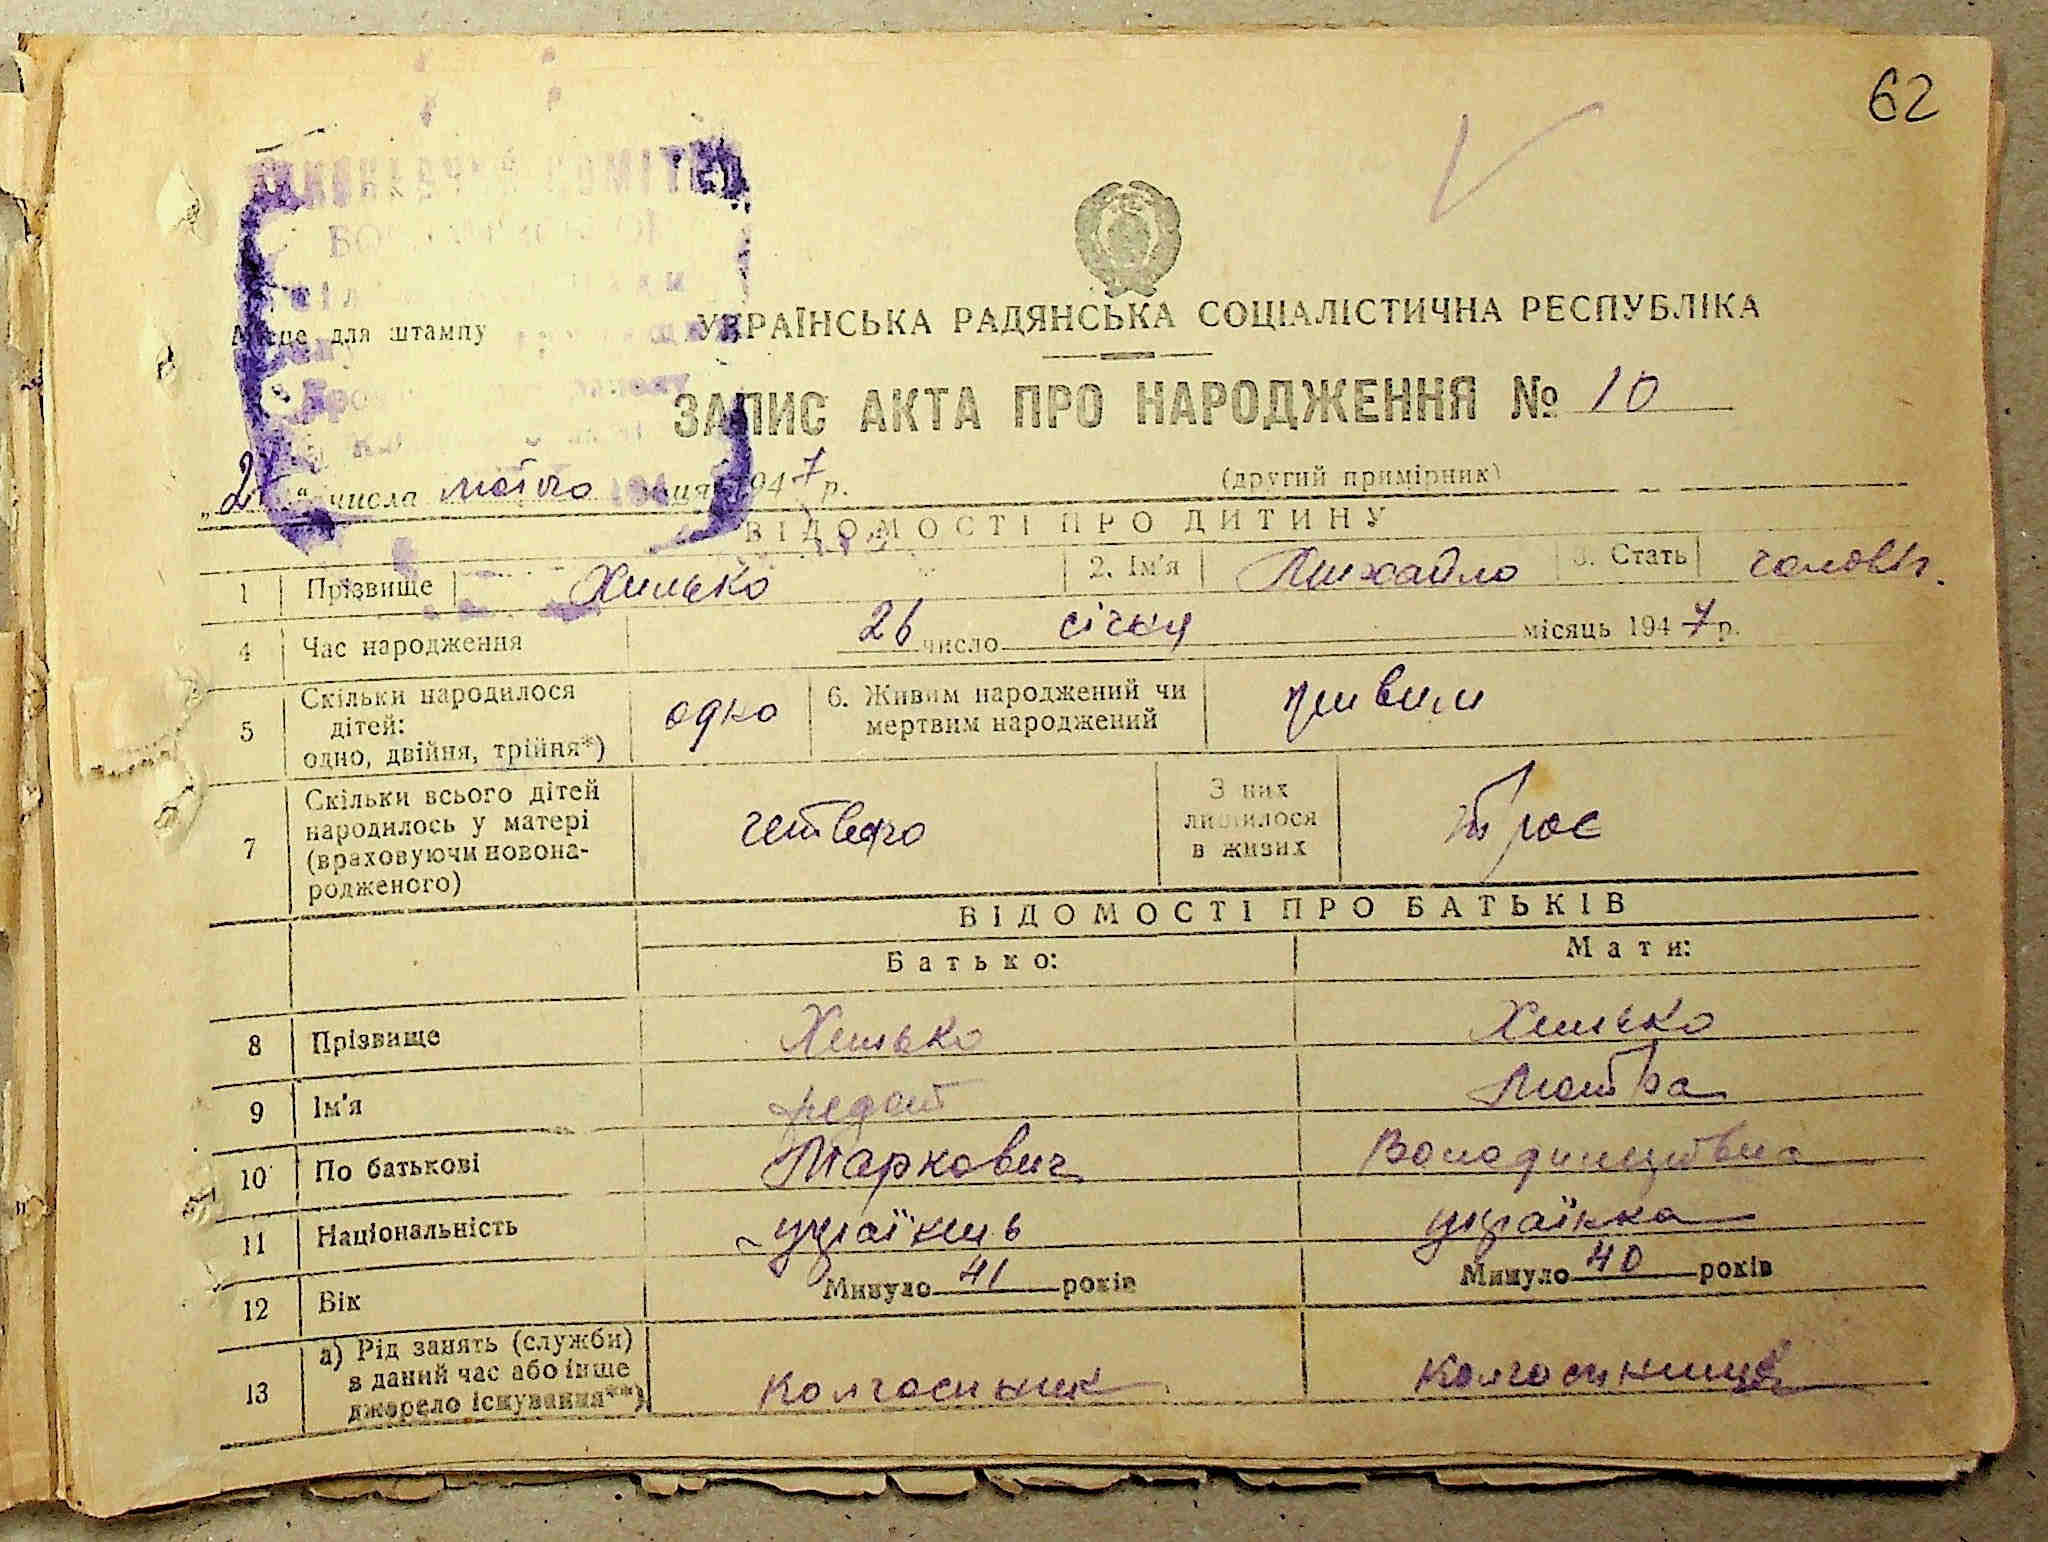 62
КОМІТЕ
Місце для штампу
УКРАЇНСЬКА РАДЯНСЬКА СОЦІАЛІСТИЧНА РЕСПУБЛІКА
ЗАПИС АКТА ПРО НАРОДЖЕННЯ № 10
(другий примірник)
числа лютого місяця 1947 р.
ВІДОМОСТІ ПРО ДИТИНУ
1 Прізвище Хилько 2. Ім'я Михайло 3. Стать чоловіч.
4 Час народження 26 число січня місяць 1947 р.
5 Скільки народилося дітей: одно, двійня, трійня*) одно 6. Живим народжений чи мертвим народжений живим
7 Скільки всього дітей народилось у матері (враховуючи новонародженого) четверо З них лишилося в живих троє
ВІДОМОСТІ ПРО БАТЬКІВ
Батько: Мати:
8 Прізвище Хилько Хилько
9 Ім'я Федот Мотря
10 По батькові Маркович
11 Національність українець українка
12 Вік Минуло 41 років Минуло 40 років
13 а) Рід занять (служби) в даний час або інше джерело існування**) колгоспник колгоспниця